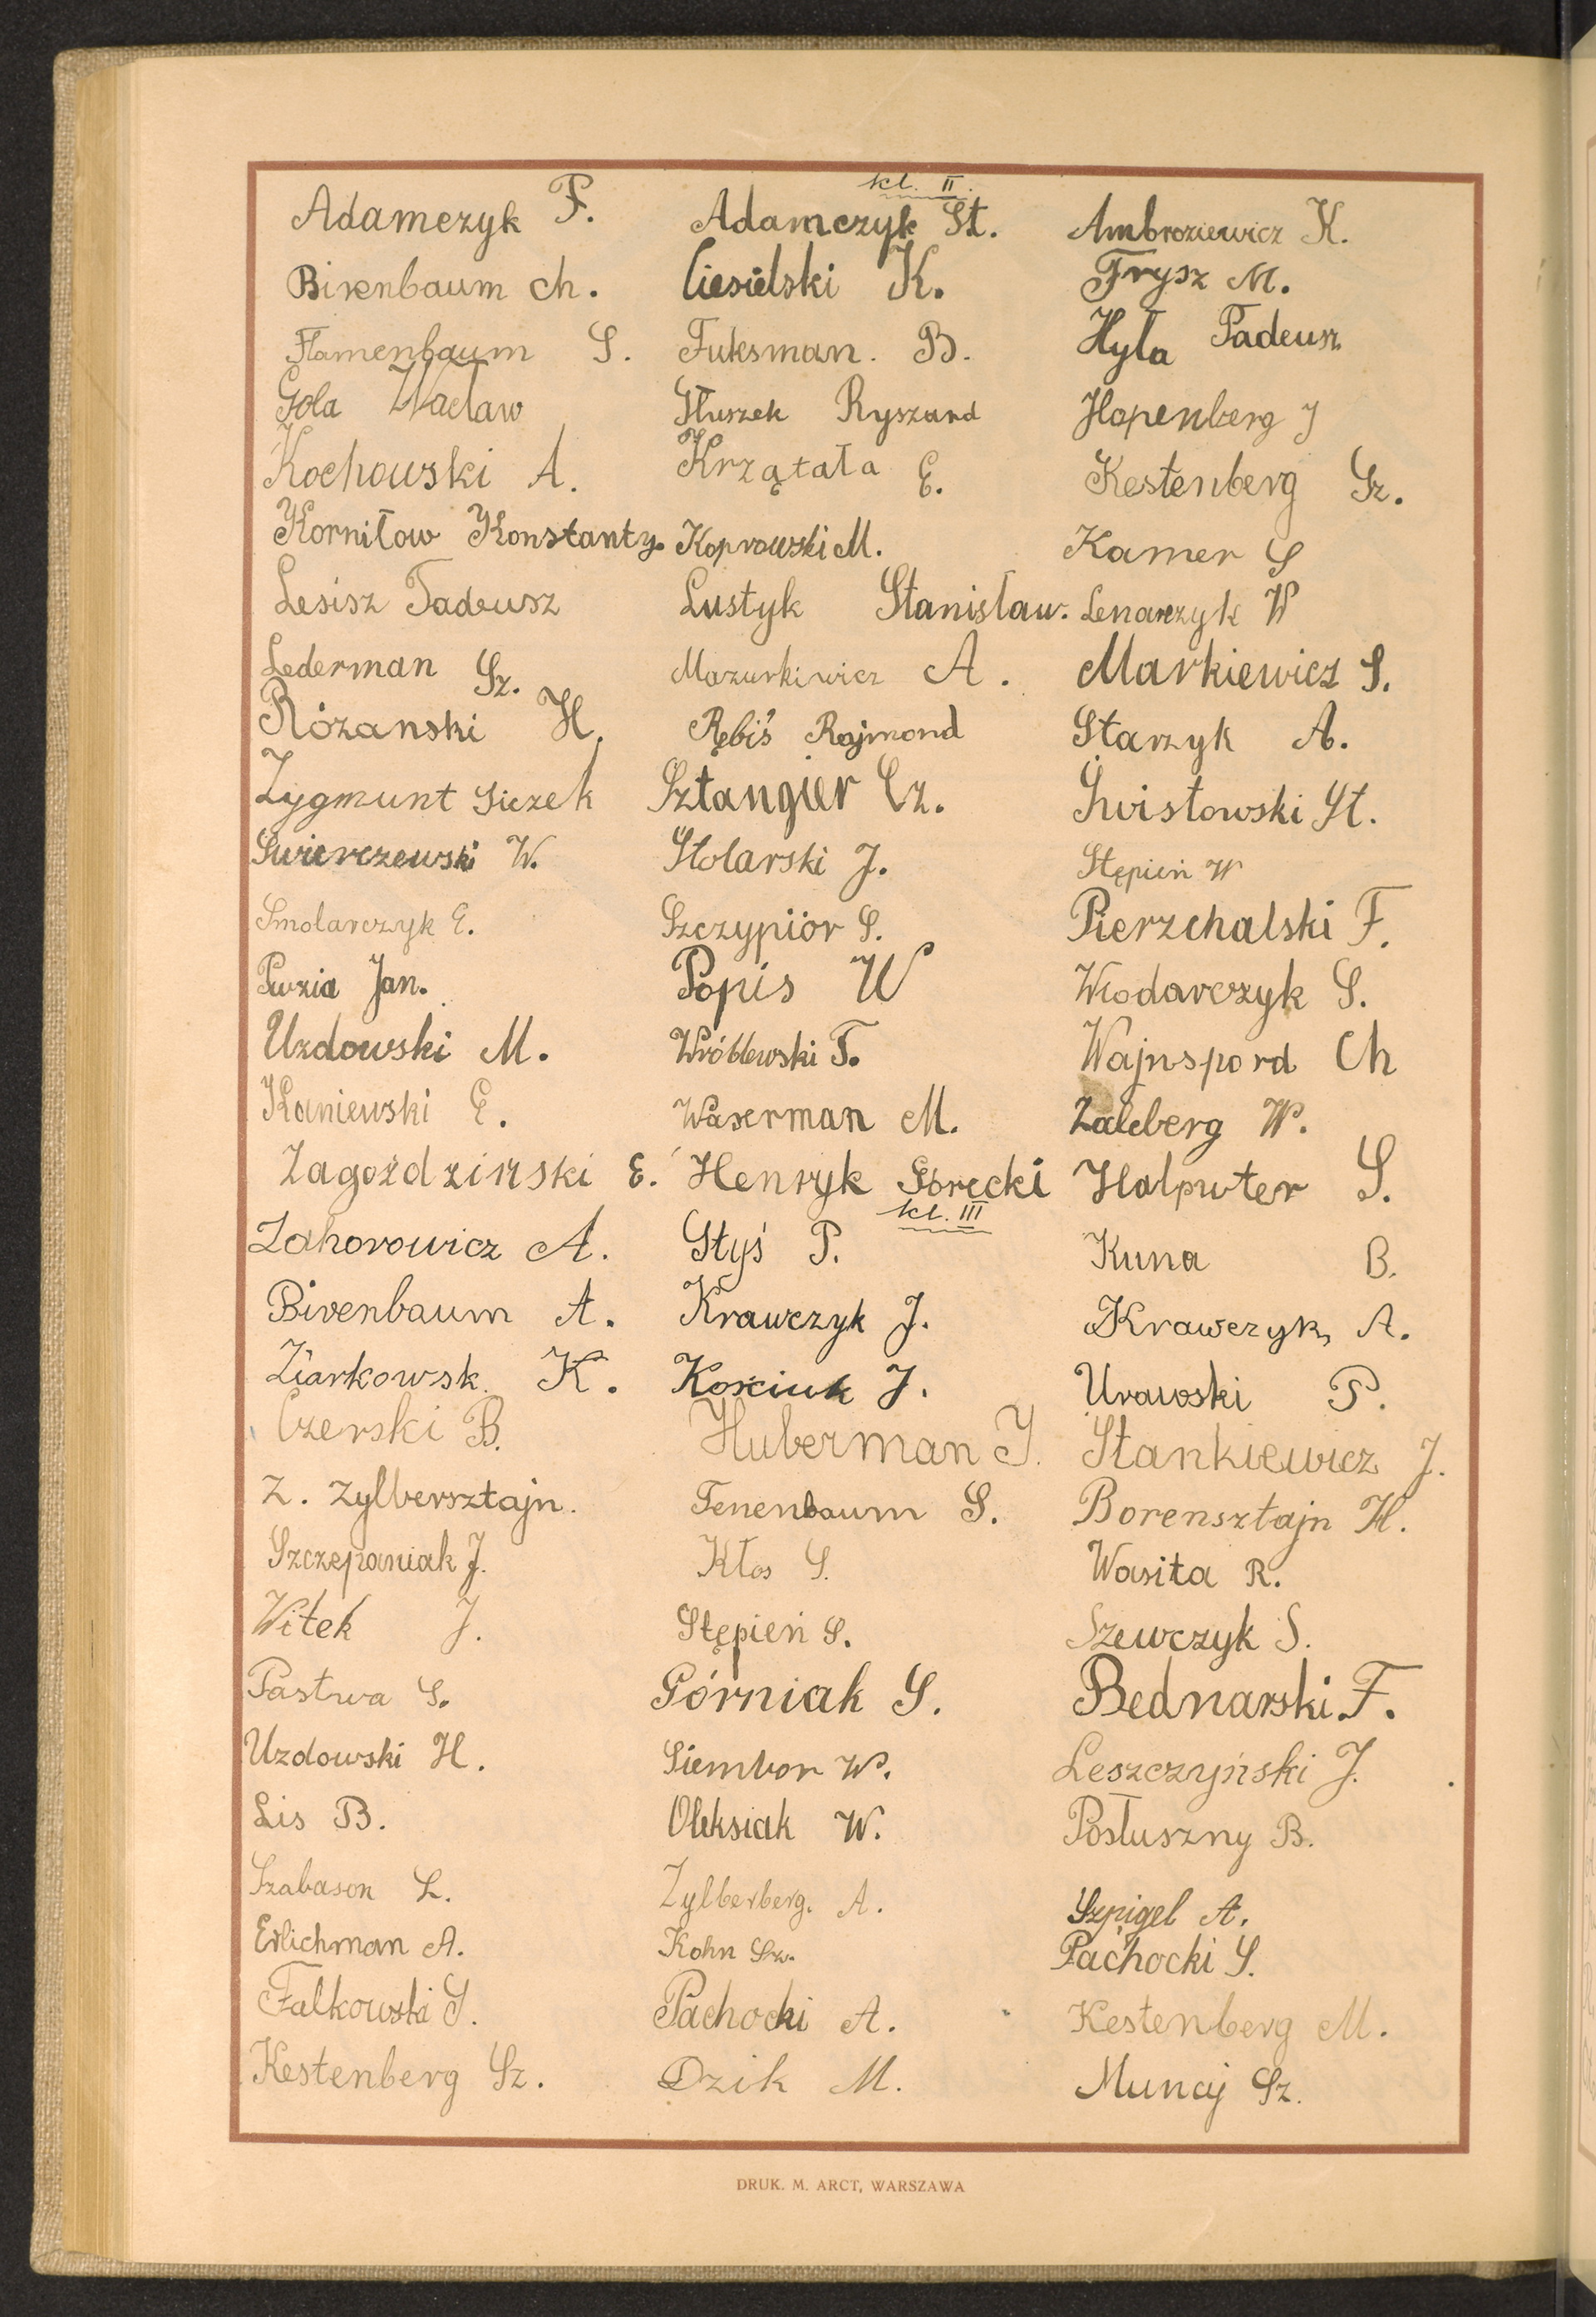 kl. II.
Adamczyk F. Adamczyk St. Ambroziewicz K.
Birenbaum Ch. Ciesielski K. Frysz M.
Flamenbaum S. Fuksman. B. Hyła Tadeusz
Gola Wacław Głuszek Ryszard Hopenberg J
Kochowski A. Krzątała E. Kestenberg Sz.
Korniłow Konstanty. Koprowski M. Kamer S
Lesisz Tadeusz Lustyk Stanisław. Lenarczyk W
Lederman Sz. Mazurkiwicz A. Markiewicz S.
Różanski H. Rębiś Rajmond Starzyk A.
Zygmunt Siczek Sztangier Cz. Śwистowski St.
Swierczewski W. Stolarski J. Stępień W
Smolarczyk E. Szczypiór S. Pierzchalski F.
Jan. Popis W Włodarczyk S.
Uzdowski M. Wróblewski T. Wajnspord Ch
Kaniewski E. Waserman M. Zaleberg W.
Zagożdziński E. Henryk Górecki Halputer S.
kl. III
Zahorowicz A. Styś P. Kuna B.
Birenbaum A. Krawczyk J. Krawczyk A.
Ziarkowsk. K. Kościuk J. Urawski P.
Czerski B. Huberman J. Stankiewicz J.
Z. Zylbersztajn. Tenenbaum S. Borensztajn H.
Szczepaniak J. Kłos S. Wasita R.
Witek J. Stępień S. Szewczyk S.
Pastwa S. Górniak S. Bednarski F.
Uzdowski H. Siembor W. Leszczyński J.
Lis B. Oleksiak W. Posłuszny B.
Szabason L. Zylberberg. A. Szpigel A.
Erlichman A. Kohn Sz. Pachocki S.
Falkowski S. Pachocki A. Kestenberg M.
Kestenberg Sz. Dzik M. Muncy Sz.
DRUK. M. ARCT, WARSZAWA